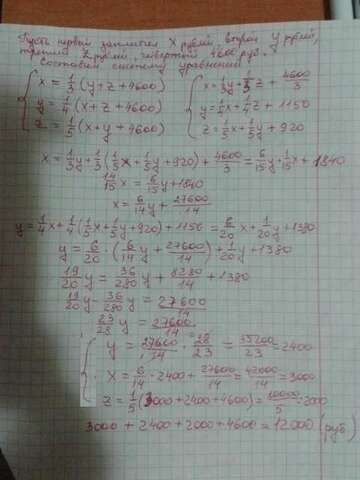 Пусть первый заплатил x рублей, второй y рублей,
третий z рублей, четвертый 4600 руб.
Составим систему уравнений:
x = 1/3 (y+z+4600)
y = 1/4 (x+z+4600)
z = 1/5 (x+y+4600)
x = 1/3 y + 1/3 z + 4600/3
y = 1/4 x + 1/4 z + 1150
z = 1/5 x + 1/5 y + 920
x = 1/3 y + 1/3 (1/5 x + 1/5 y + 920) + 4600/3 = 6/15 y + 1/15 x + 1840
14/15 x = 6/15 y + 1840
x = 6/14 y + 27600/14
y = 1/4 x + 1/4 (1/5 x + 1/5 y + 920) + 1150 = 6/20 x + 1/20 y + 1380
y = 6/20 · (6/14 y + 27600/14) + 1/20 y + 1380
19/20 y = 36/280 y + 8280/14 + 1380
19/20 y - 36/280 y = 27600/14
23/28 y = 27600/14
y = 27600/14 · 28/23 = 55200/23 = 2400
x = 6/14 · 2400 + 27600/14 = 42000/14 = 3000
z = 1/5 (3000 + 2400 + 4600) = 10000/5 = 2000
3000 + 2400 + 2000 + 4600 = 12000 (руб)